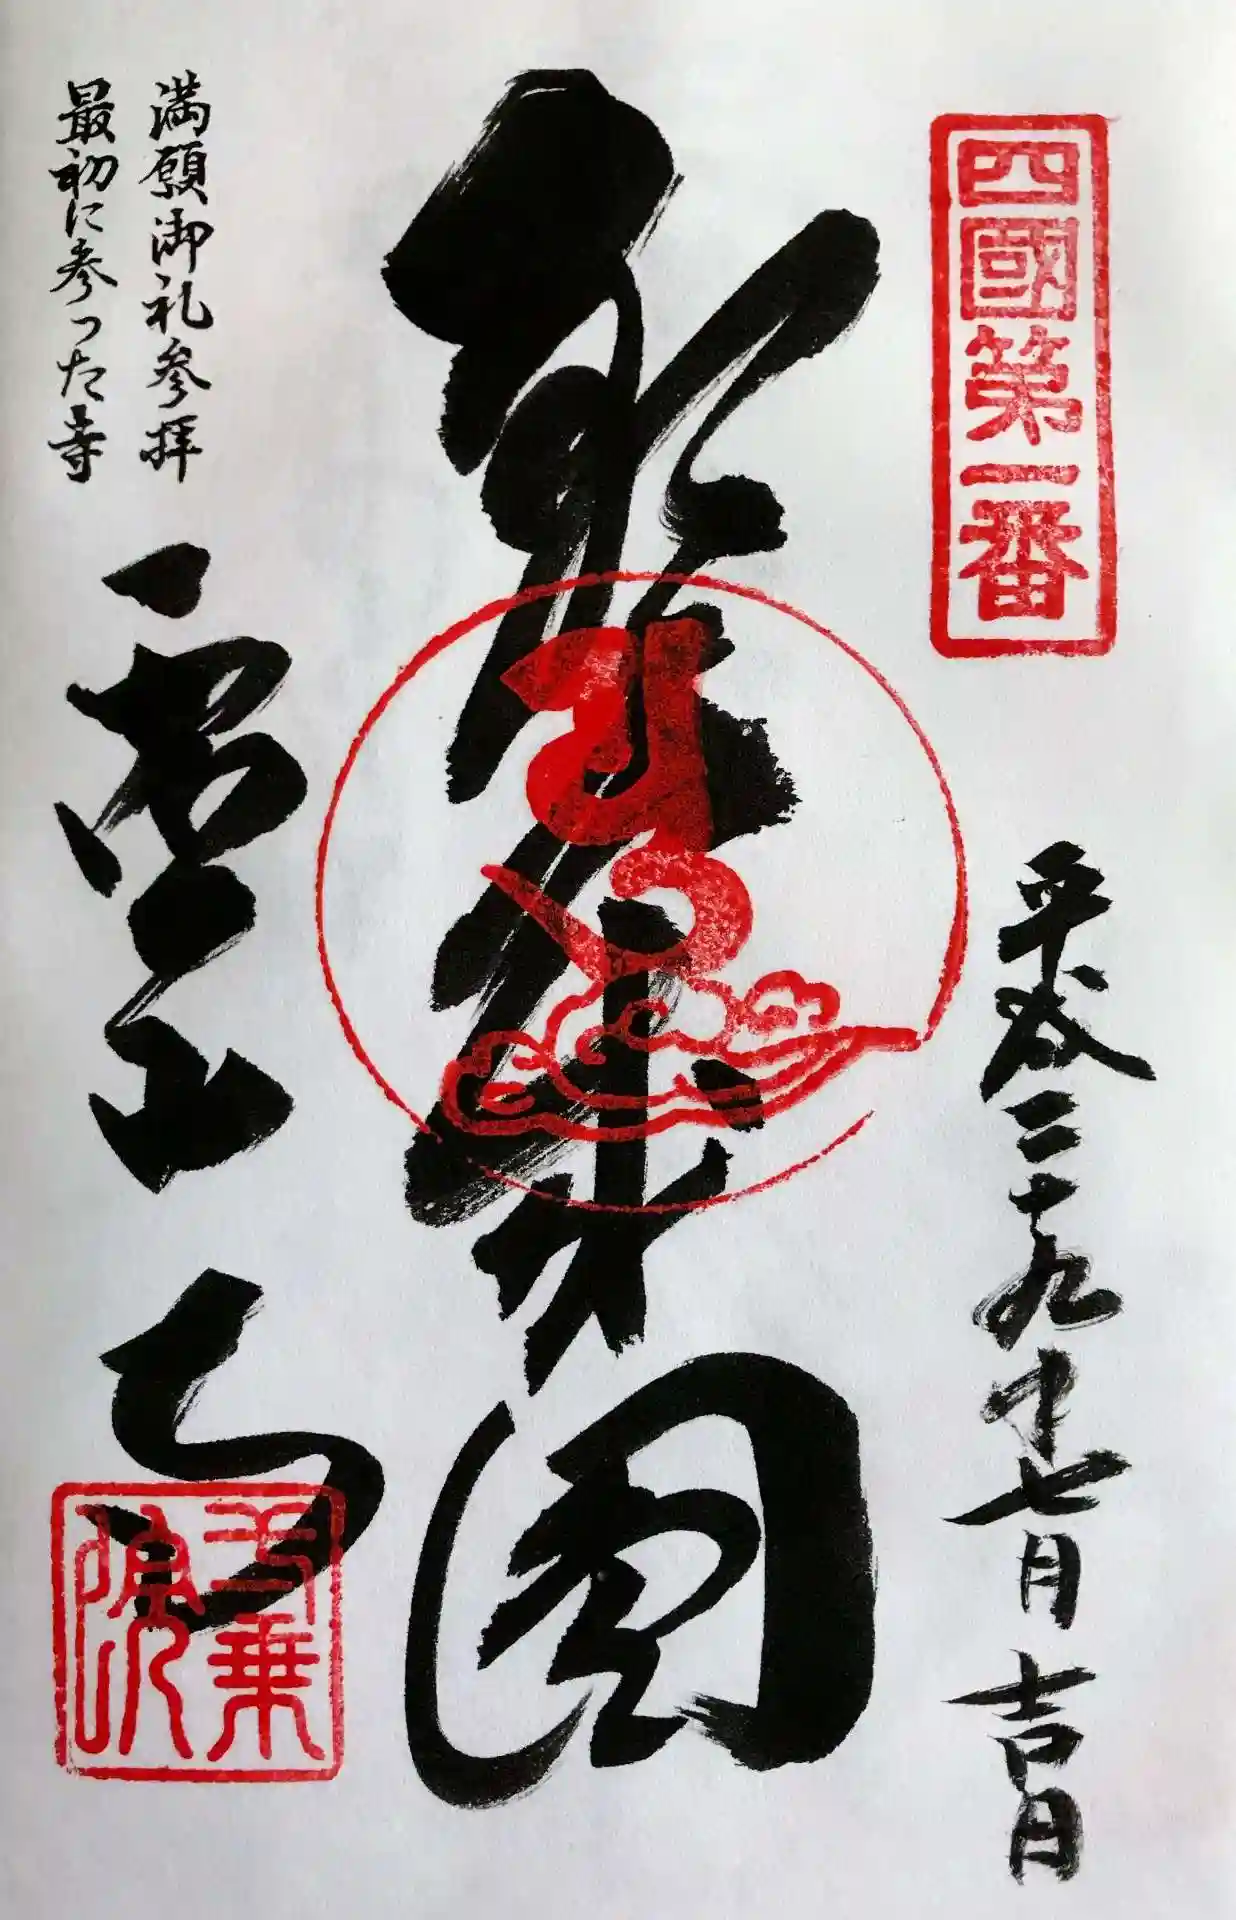 四國第一番
平成二十九年七月吉日
満願御礼参拝
最初に参った寺
霊山寺